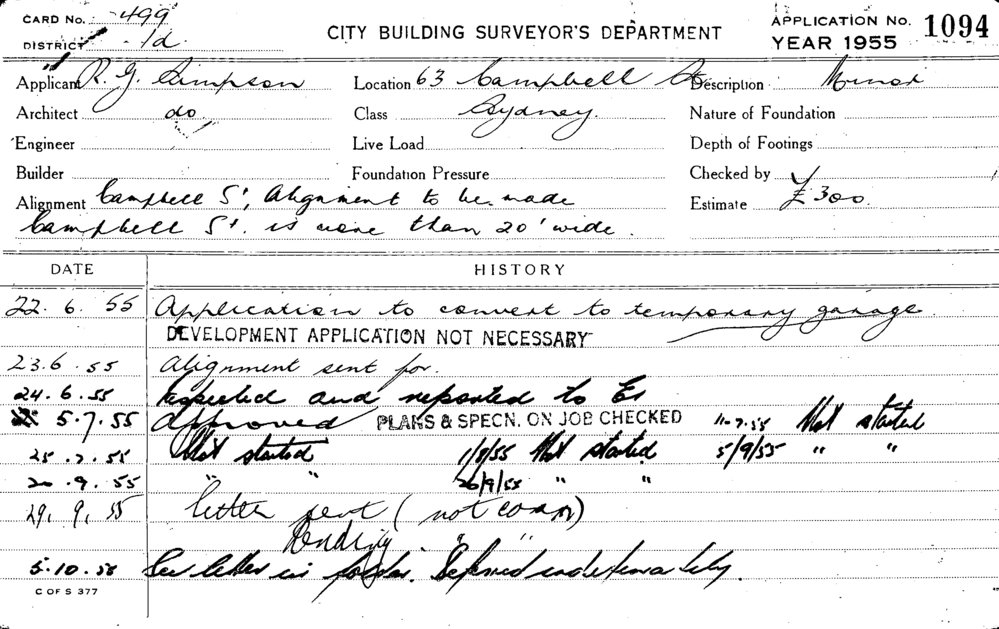 CARD No. 499
DISTRICT 1d.
CITY BUILDING SURVEYOR'S DEPARTMENT
APPLICATION No. 1094
YEAR 1955
Applicant R. G. Simpson
Location 63 Campbell St
Description Minor
Architect do.
Class Sydney.
Nature of Foundation
Engineer
Live Load
Depth of Footings
Builder
Foundation Pressure
Checked by
Alignment Campbell St, Alignment to be made
Estimate £300.
Campbell St. is more than 20' wide.
DATE HISTORY
22.6.55 Application to convert to temporary garage.
DEVELOPMENT APPLICATION NOT NECESSARY
23.6.55 Alignment sent for.
24.6.55 Inspected and reported to
5.7.55 Approved PLANS & SPECN. ON JOB CHECKED 11-7.55 Not started
25.7.55 Not started 1/8/55 Not started 5/9/55 " "
20.9.55 " " 26/9/55 " "
29.9.55 letter sent (not comm)
Pending. " "
5.10.55 See letter in folder. Deferred indefinitely.
C OF S 377